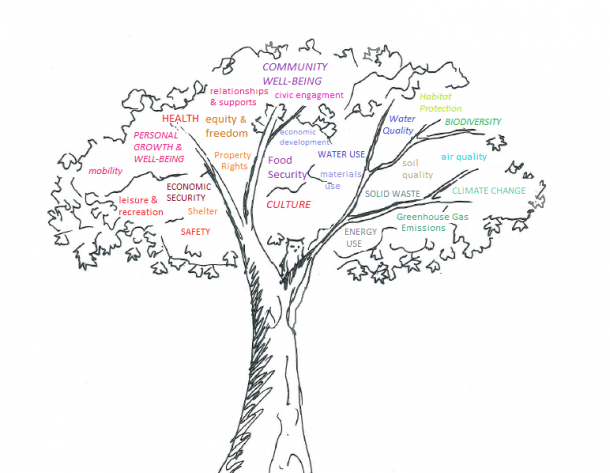 COMMUNITY
WELL-BEING
relationships
& supports
civic engagment
HEALTH
equity &
freedom
PERSONAL
GROWTH &
WELL-BEING
mobility
Property
Rights
economic
development
Food
Security
WATER USE
materials
use
CULTURE
ECONOMIC
SECURITY
leisure &
recreation
Shelter
SAFETY
Habitat
Protection
Water
Quality
BIODIVERSITY
soil
quality
air quality
SOLID WASTE
CLIMATE CHANGE
Greenhouse Gas
Emissions
ENERGY
USE